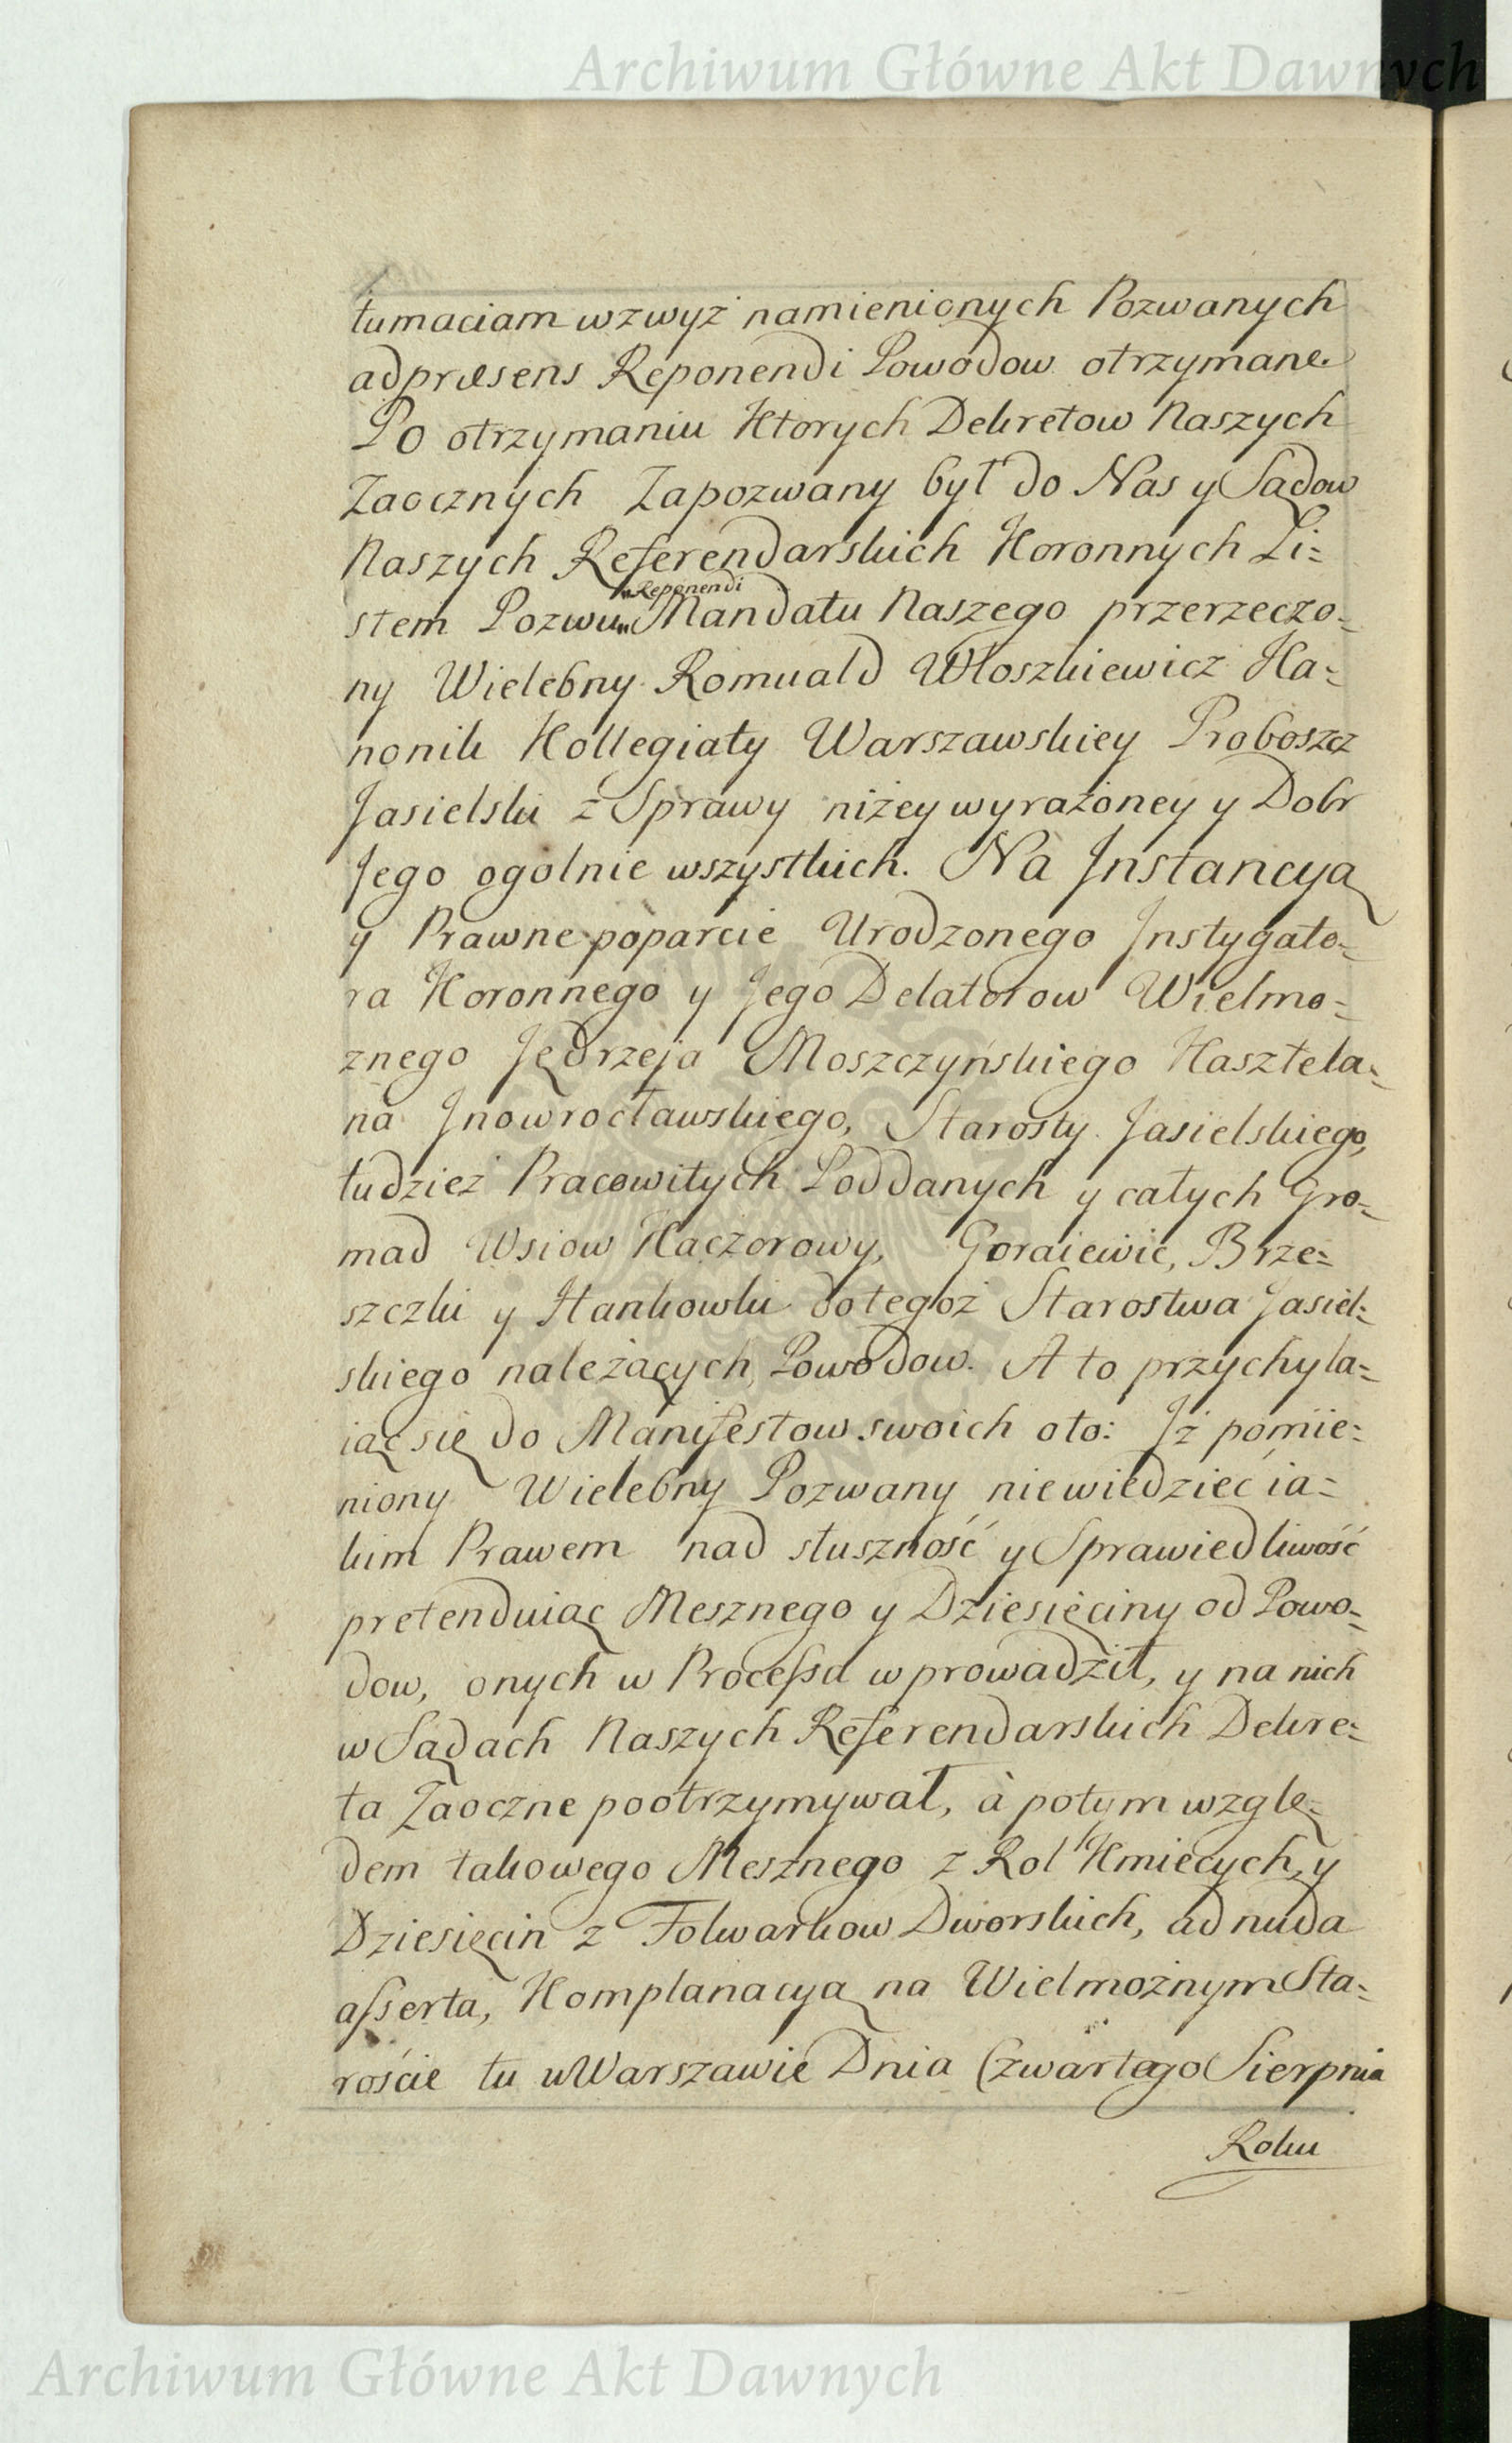 Archiwum Główne Akt Dawnych
tumaciam wzwyż namienionych Pozwanych
ad præsens Reponendi Powodow otrzymane.
Po otrzymaniu Ktorych Dekretow Naszych
Zaocznych Zapozwany był do Nas y Sądow
Naszych Referendarskich Koronnych Li=
stem Pozwu „Reponendi„ Mandatu Naszego przerzeczo=
ny Wielebny Romuald Włoszkiewicz Ka=
nonik Kollegiaty Warszawskiey Proboszcz
Jasielski z Sprawy niżey wyrażoney y Dobr
Jego ogolnie wszystkich. Na Jnstancyą
y Prawne poparcie Urodzonego Jnstygato=
ra Koronnego y Jego Delatorow Wielmo=
znego Jędrzeja Moszczyńskiego Kasztela=
na Jnowrocławskiego, Starosty Jasielskiego,
tudziez Pracowitych Poddanych y całych Gro=
mad Wsiow Kaczorowy, Goraiewic, Brze=
szczki y Hankowki do tegoż Starostwa Jasiel=
skiego należących, Powodow. A to przychyla=
iąc się do Manifestow swoich oto: Jż pomie=
niony Wielebny Pozwany niewiedzieć ia=
kim Prawem nad słuszność y Sprawiedliwość
pretenduiąc Mesznego y Dziesięciny od Powo=
dow, onych w Processa wprowadził, y na nich
w Sądach Naszych Referendarskich Dekre=
ta Zaoczne pootrzymywał, à potym wzglę=
dem takowego Mesznego z Rol Kmiecych, y
Dziesięcin z Folwarkow Dworskich, ad nuda
asserta, Komplanacyą na Wielmożnym Sta=
roście tu w Warszawie Dnia Czwartego Sierpnia
Roku
Archiwum Główne Akt Dawnych